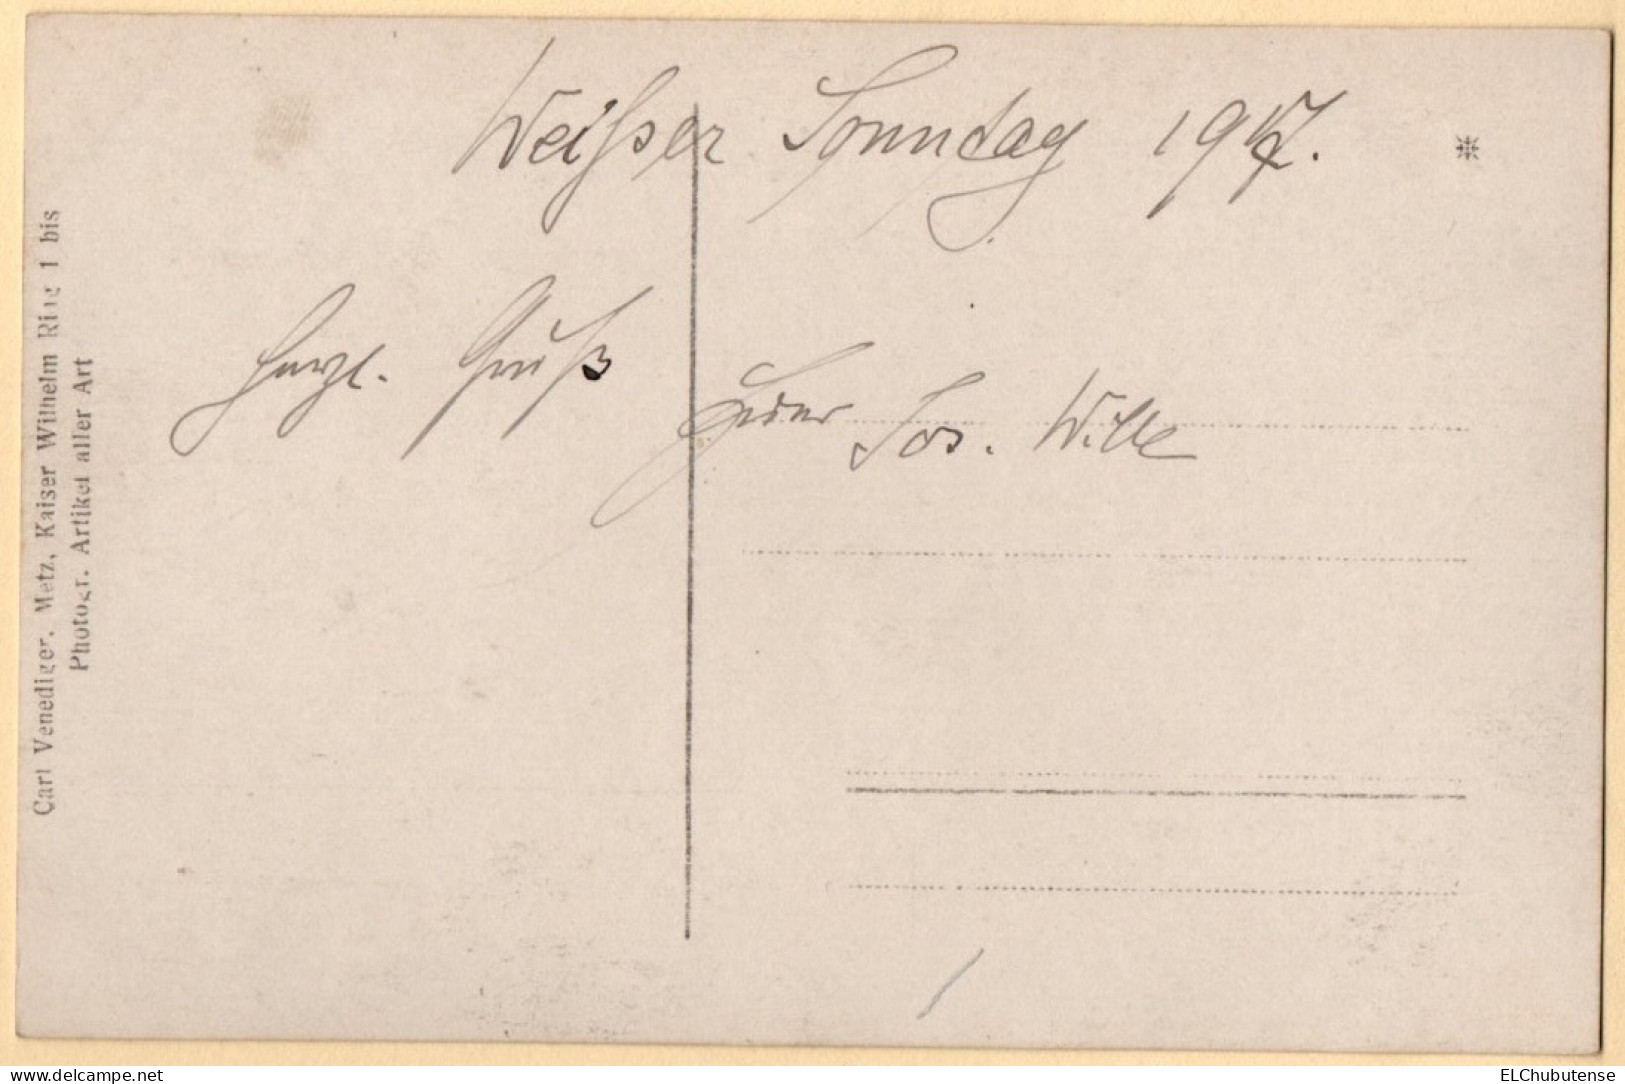 Weißer Sonntag 1917.
Herzl. Gruß
Jos. Wille
Carl Venediger, Metz, Kaiser Wilhelm Ring 1 bis
Photogr. Artikel aller Art
delcampe.net
ELChubutense